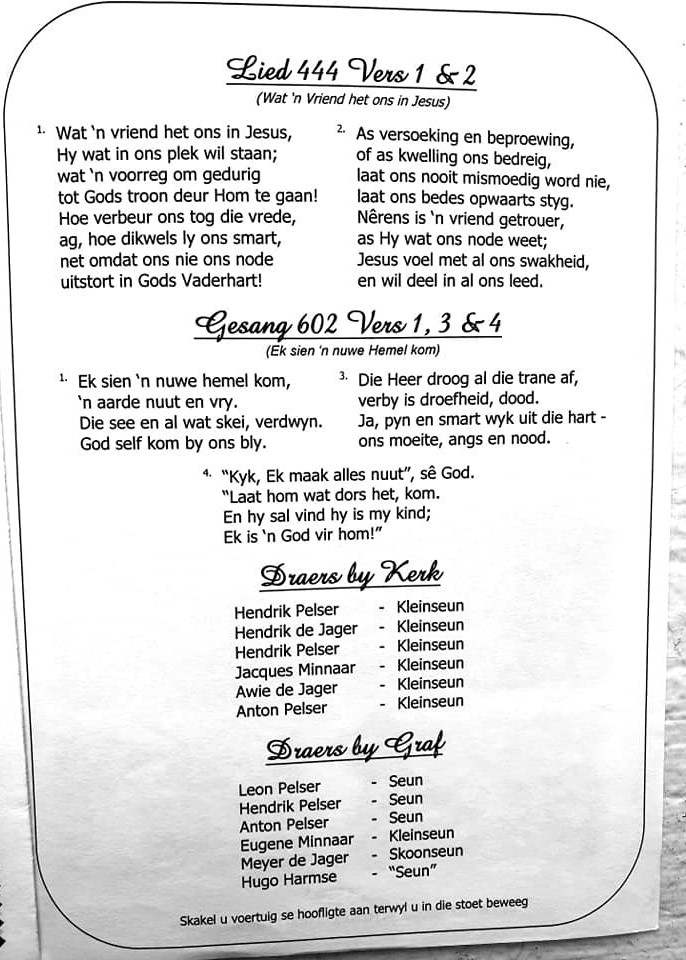 Lied 444 Vers 1 & 2
(Wat 'n Vriend het ons in Jesus)
1. Wat 'n vriend het ons in Jesus,
Hy wat in ons plek wil staan;
wat 'n voorreg om gedurig
tot Gods troon deur Hom te gaan!
Hoe verbeur ons tog die vrede,
ag, hoe dikwels ly ons smart,
net omdat ons nie ons node
uitstort in Gods Vaderhart!
2. As versoeking en beproewing,
of as kwelling ons bedreig,
laat ons nooit mismoedig word nie,
laat ons bedes opwaarts styg.
Nêrens is 'n vriend getrouer,
as Hy wat ons node weet;
Jesus voel met al ons swakheid,
en wil deel in al ons leed.
Gesang 602 Vers 1, 3 & 4
(Ek sien 'n nuwe Hemel kom)
1. Ek sien 'n nuwe hemel kom,
'n aarde nuut en vry.
Die see en al wat skei, verdwyn.
God self kom by ons bly.
3. Die Heer droog al die trane af,
verby is droefheid, dood.
Ja, pyn en smart wyk uit die hart -
ons moeite, angs en nood.
4. "Kyk, Ek maak alles nuut", sê God.
"Laat hom wat dors het, kom.
En hy sal vind hy is my kind;
Ek is 'n God vir hom!"
Draers by Kerk
Hendrik Pelser - Kleinseun
Hendrik de Jager - Kleinseun
Hendrik Pelser - Kleinseun
Jacques Minnaar - Kleinseun
Awie de Jager - Kleinseun
Anton Pelser - Kleinseun
Draers by Graf
Leon Pelser - Seun
Hendrik Pelser - Seun
Anton Pelser - Seun
Eugene Minnaar - Kleinseun
Meyer de Jager - Skoonseun
Hugo Harmse - "Seun"
Skakel u voertuig se hoofligte aan terwyl u in die stoet beweeg